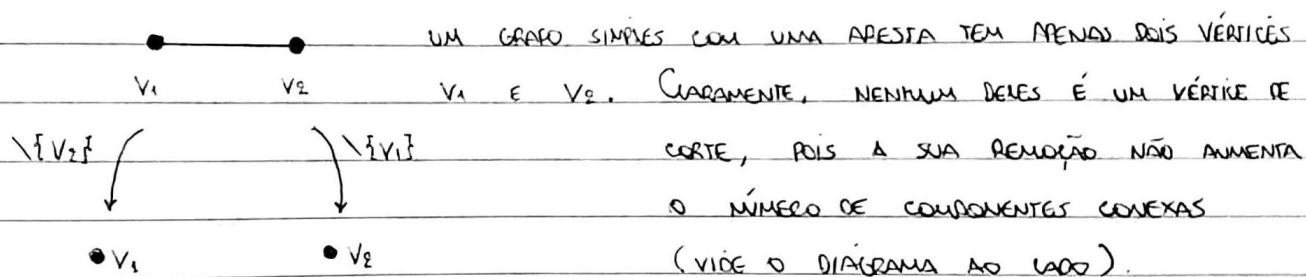 UM GRAFO SIMPLES COM UMA ARESTA TEM APENAS DOIS VÉRTICES
V₁ V₂ V₁ E V₂. CLARAMENTE, NENHUM DELES É UM VÉRTICE DE
\{V₂} \{V₁} CORTE, POIS A SUA REMOÇÃO NÃO AUMENTA
O NÚMERO DE COMPONENTES CONEXAS
V₁ V₂ (VIDE O DIAGRAMA AO LADO).